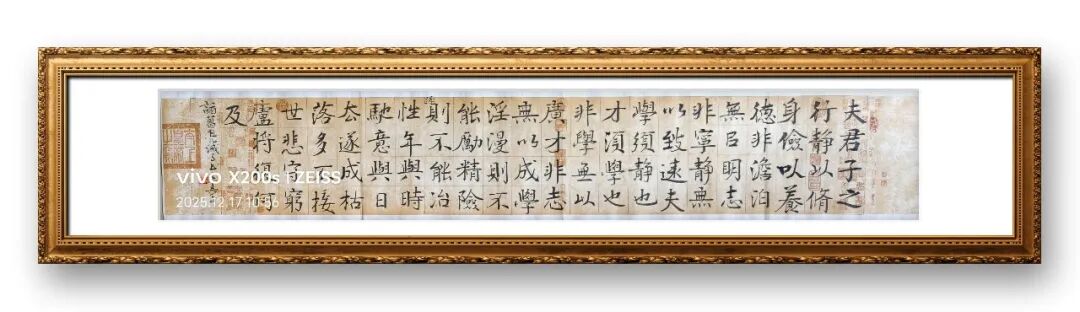 夫君子之
行静以脩
身儉以養
德非澹泊
無㠯明志
非寧静無
以致遠夫
學須静也
才須學也
非學無以
廣才非志
無以成學
淫漫則不
能勵精險
則不能冶
性年與時
馳意與日
去遂成枯
落多不接
世悲守窮
廬將復何
及
vivo X200s | ZEISS
2025.12.17 10:56